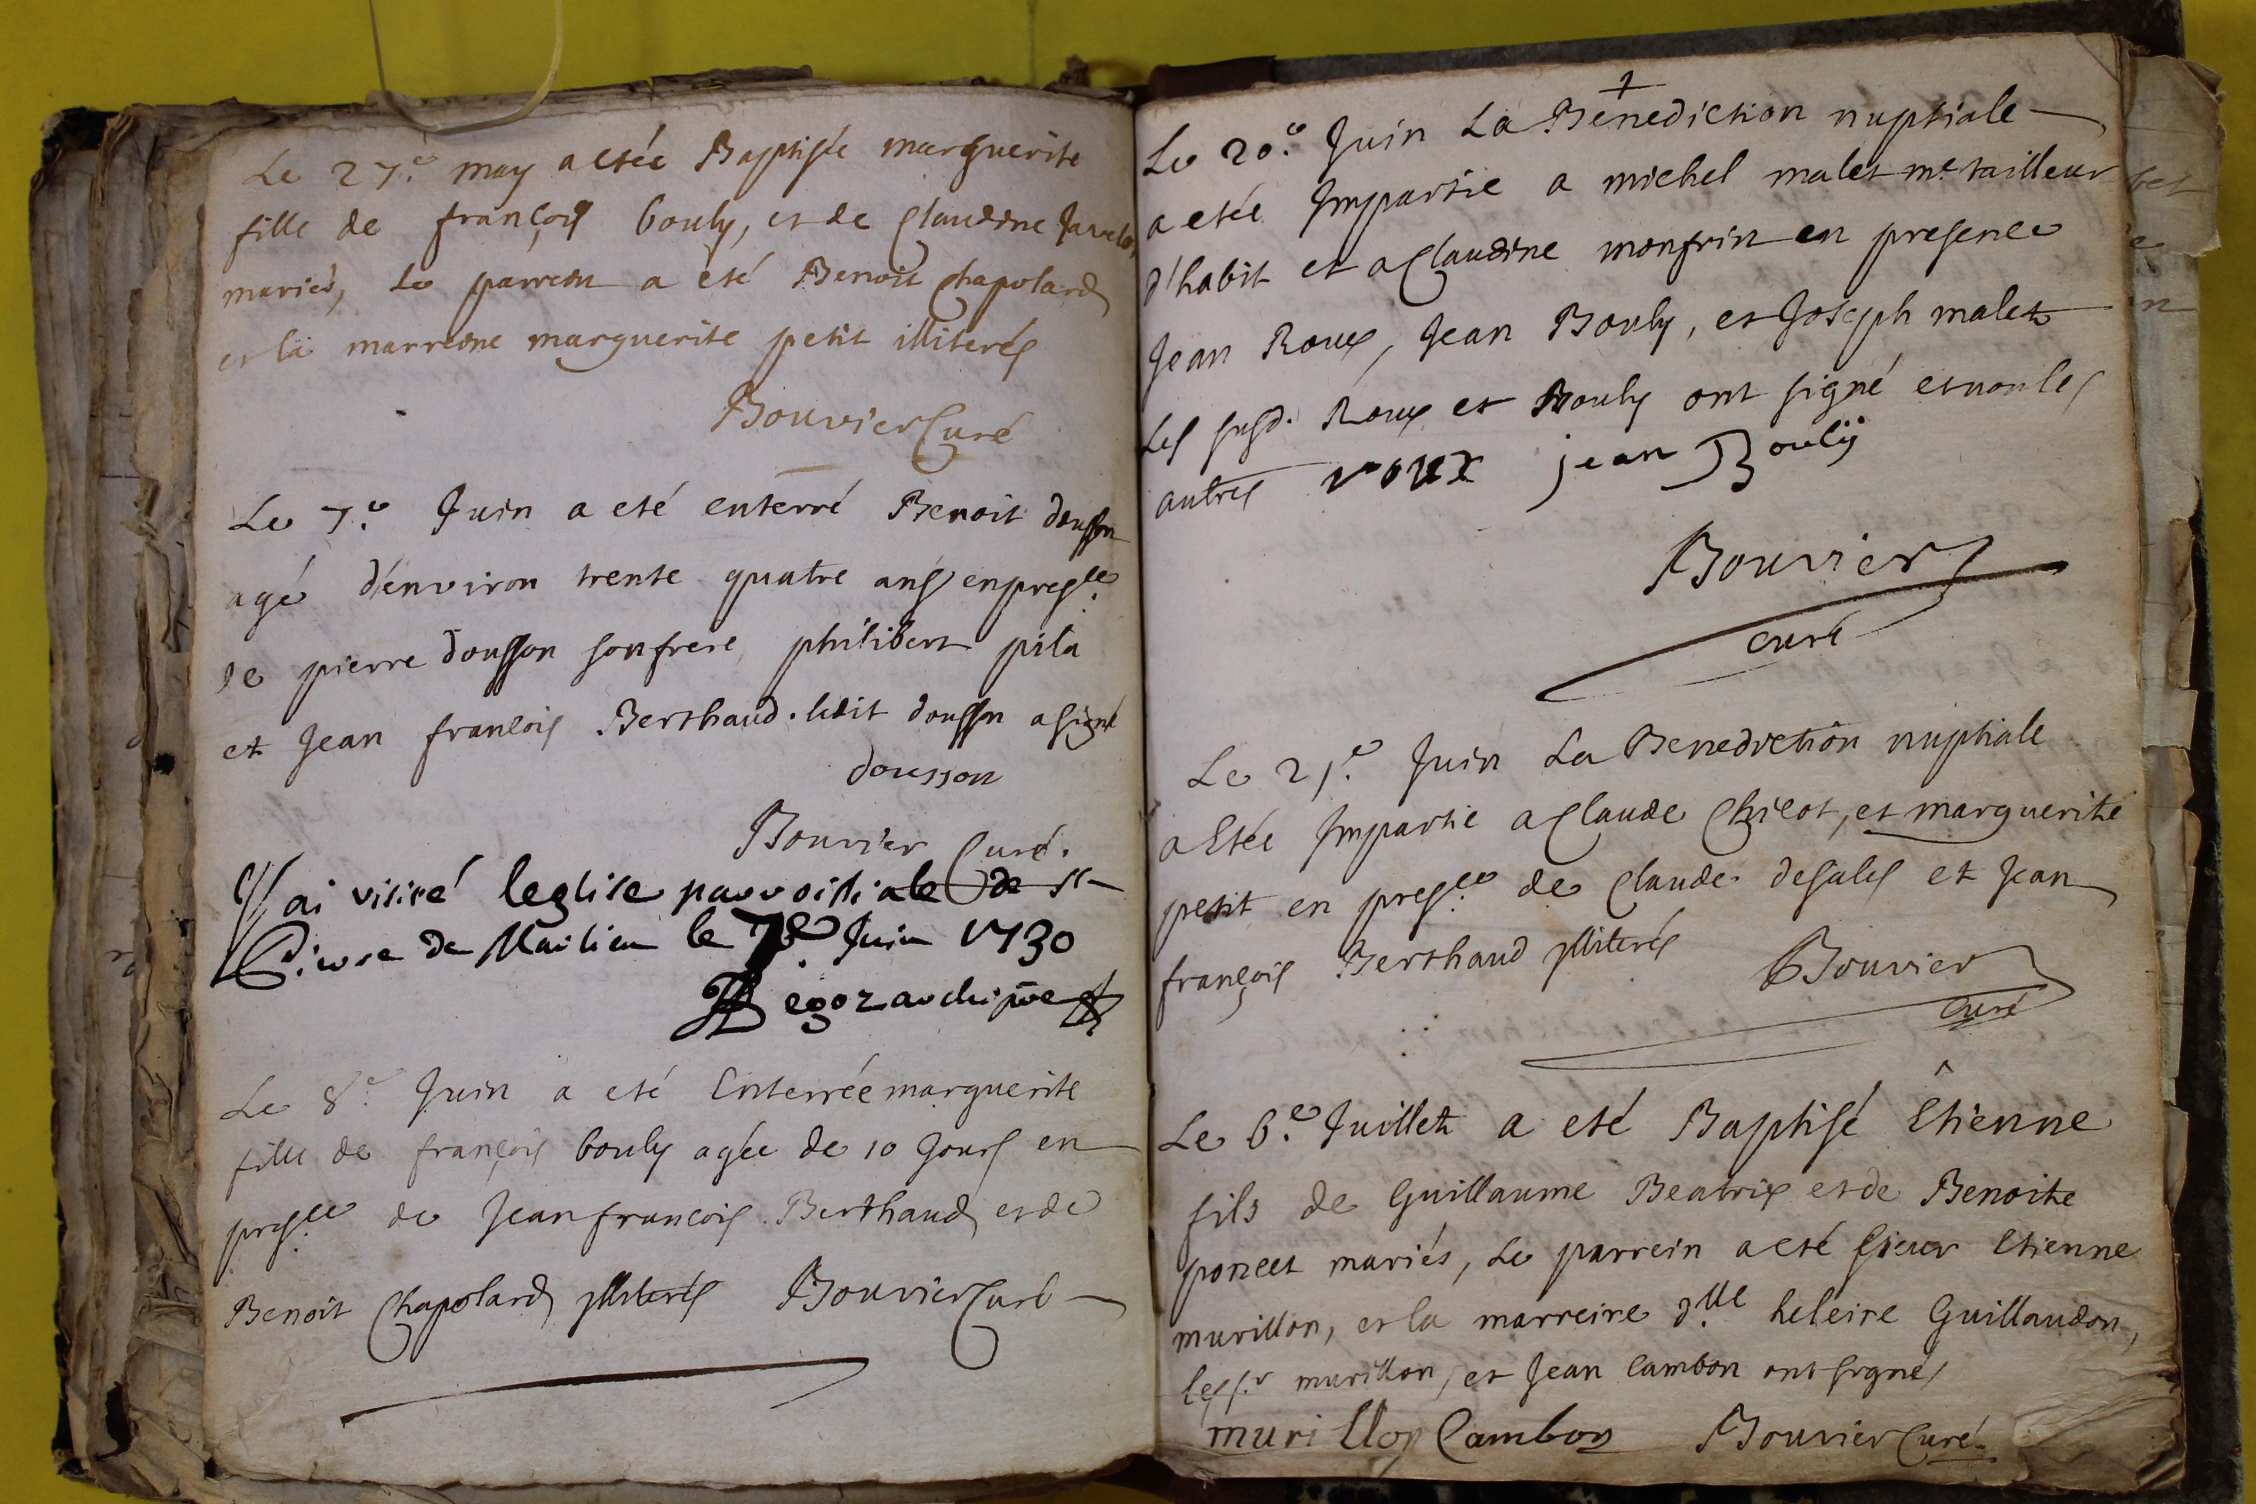 Le 27.e may a etée Baptisée marguerite
fille de françois bouly, et de Claudine
mariés, Le parrein a eté Benoit Chapolard
et la marreine marguerite petit illiterés
Bouvier Curé
Le 7.e Juin a eté enterré Benoit dousson
agé d'environ trente quatre ans en pres.ce
de pierre dousson son frere, philibert pila
et Jean francois Berthaud. ledit dousson a signé
dousson
Bouvier Curé.
J'ai visité leglise parroissiale de st
Pierre de Mailieu le 7e Juin 1730
archipre
Le 8.e Juin a eté Enterrée marguerite
fille de françois bouly agée de 10 Jours en
pres.ce de Jean francois Berthaud et de
Benoit Chapolard jlliterés Bouvier Curé
Le 20.e Juin La Benediction nuptiale
a etée Jmpartie a michel malet m.e tailleur
d'habit et a Claudine monfrin en presence
Jean Roux, Jean Bouly, et Joseph malet
Les susd. Roux et Bouly ont signé et non les
autres roux jean Boulÿ
Bouvier
curé
Le 21.e Juin La Benediction nuptiale
a Etée Jmpartie a Claude Chicot, et marguerite
petit en pres.ce de Claude desales et Jean
françois Berthaud jlliterés Bouvier
curé
Le 6.e Juillet a eté Baptisé Etienne
fils de Guillaume Beatrix et de Benoite
poncet mariés, Le parrein a eté sieur Etienne
murillon, et la marreine d.lle heleine Guillaudon,
les s.r murillon, et Jean Cambon ont signés
murillon Cambon Bouvier Curé.